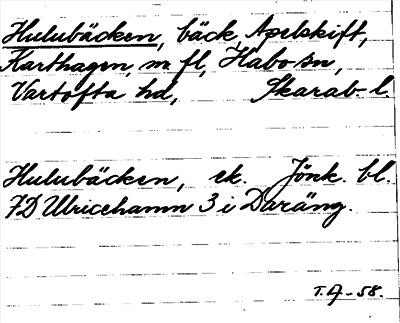 Hulubäcken, bäck Axelskift,
Karthagen, m fl, Habo sn,
Vartofta hd, Skarab. l.
Hulubäcken, ek. Jönk. bl.
7D Ulricehamn 3 i Daräng.
T.A-58.